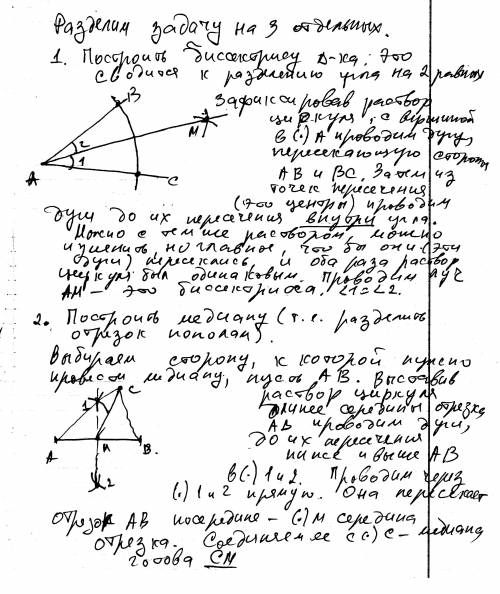 Разделим задачу на 3 отдельных.
1. Построить биссектрису Δ-ка. Это
сводится к разделению угла на 2 равных
B
Зафиксировав раствор
циркуля, с вершиной
M
2
в (·) A проводим дугу,
1
пересекающую стороны
A
C
AB и BC. Затем из
точек пересечения
(это центры) проводим
дуги до их пересечения внутри угла.
Можно с тем же раствором, можно
изменить, но главное, что бы они (эти
дуги) пересеклись, и оба раза раствор
циркуля был одинаковым. Проводим луч
AM – это биссектриса. ∠1=∠2.
2. Построить медиану (т.е. разделить
отрезок пополам).
Выбираем сторону, к которой нужно
провести медиану, пусть AB. Выставив
C
раствор циркуля
1
длинее середины отрезка
AB проводим дуги,
A
M
B.
до их пересечения
ниже и выше AB
2
в (·) 1 и 2. Проводим через
(·) 1 и 2 прямую. Она пересекает
отрезок AB посередине – (·) M середина
отрезка. Соединяем ее с (·) C – медиана
готова CM